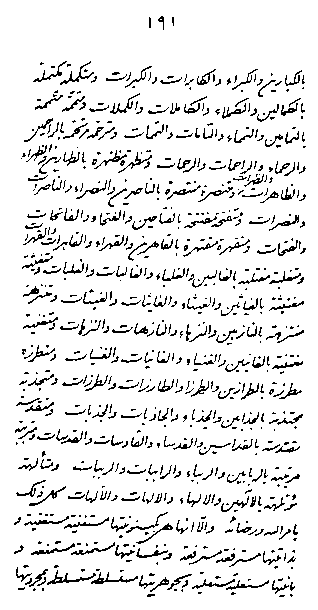 ١٩١
بالكبارين والكبراء والكابرات والكبرات ومتكملة مكتملة
بالكمالين والكملاء والكاملات والكملات ومتممة متممة
بالتمامين والتماء والتامات والتمات ومترحمة مرتحمة بالراحمين
والرحماء والراحمات والرحمات ومتظهرة مظتهرة بالظهارين والظهراء
والظاهرات والظهرات ومتنصرة منتصرة بالناصرين والنصراء والناصرات
والنصرات ومتفتحة مفتتحة بالفتاحين والفتحاء والفاتحات
والفتحات ومتقهرة مقتهرة بالقاهرين والقهراء والقاهرات والقهرات
ومتغلبة مغتلبة بالغالبين والغلباء والغالبات والغلبات ومتغيثة
مغتيثة بالغياثين والغيثاء والغايثات والغيثات ومتنزهة
منتزهة بالنازهين والنزهاء والنازهات والنزهات ومتغنية
مغتنية بالغانيين والغنياء والغانيات والغنيات ومتطرزة
مطرزة بالطرازين والطرزاء والطارزات والطرزات ومتجذبة
مجتذبة بالجذابين والجذباء والجاذبات والجذبات ومتقدسة
مقتدسة بالقداسين والقدساء والقادسات والقدسات ومتربية
مرتبية بالربابين والرباء والرابيات والربيات ومتألهة
مؤتلهة بالألاهين والألهاء والالهات والآلهات كل ذلك
بامرالله ورضائه والا انها هي كينونيتها مستغنية مستغنية و
بذاتيتها مسترفعة مسترفعة ونفسانيتها مستمنعة مستمنعة و
بانيتها مستعلية مستعلية وبجوهريتها مستسلطة مستسلطة وبمجرديتها